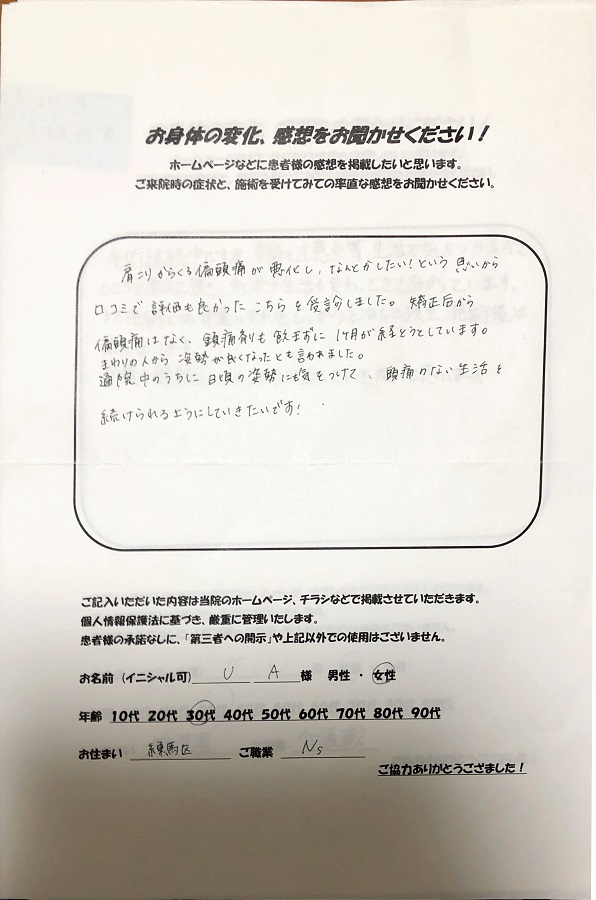 お身体の変化、感想をお聞かせください！
ホームページなどに患者様の感想を掲載したいと思います。
ご来院時の症状と、施術を受けてみての率直な感想をお聞かせください。
肩こりからくる偏頭痛が悪化し、なんとかしたい!という思いから
口コミで評価も良かったこちらを受診しました。矯正后から
偏頭痛はなく、鎮痛剤も飲まずに1ヶ月が経とうとしています。
まわりの人から姿勢が良くなったとも言われました。
通院中のうちに日頃の姿勢にも気をつけて、頭痛のない生活を
続けられるようにしていきたいです!
ご記入いただいた内容は当院のホームページ、チラシなどで掲載させていただきます。
個人情報保護法に基づき、厳重に管理いたします。
患者様の承諾なしに、「第三者への開示」や上記以外での使用はございません。
お名前（イニシャル可） U A 様 男性 ・ 女性
年齢 10代 20代 30代 40代 50代 60代 70代 80代 90代
お住まい 練馬区 ご職業 Ns
ご協力ありがとうござました！